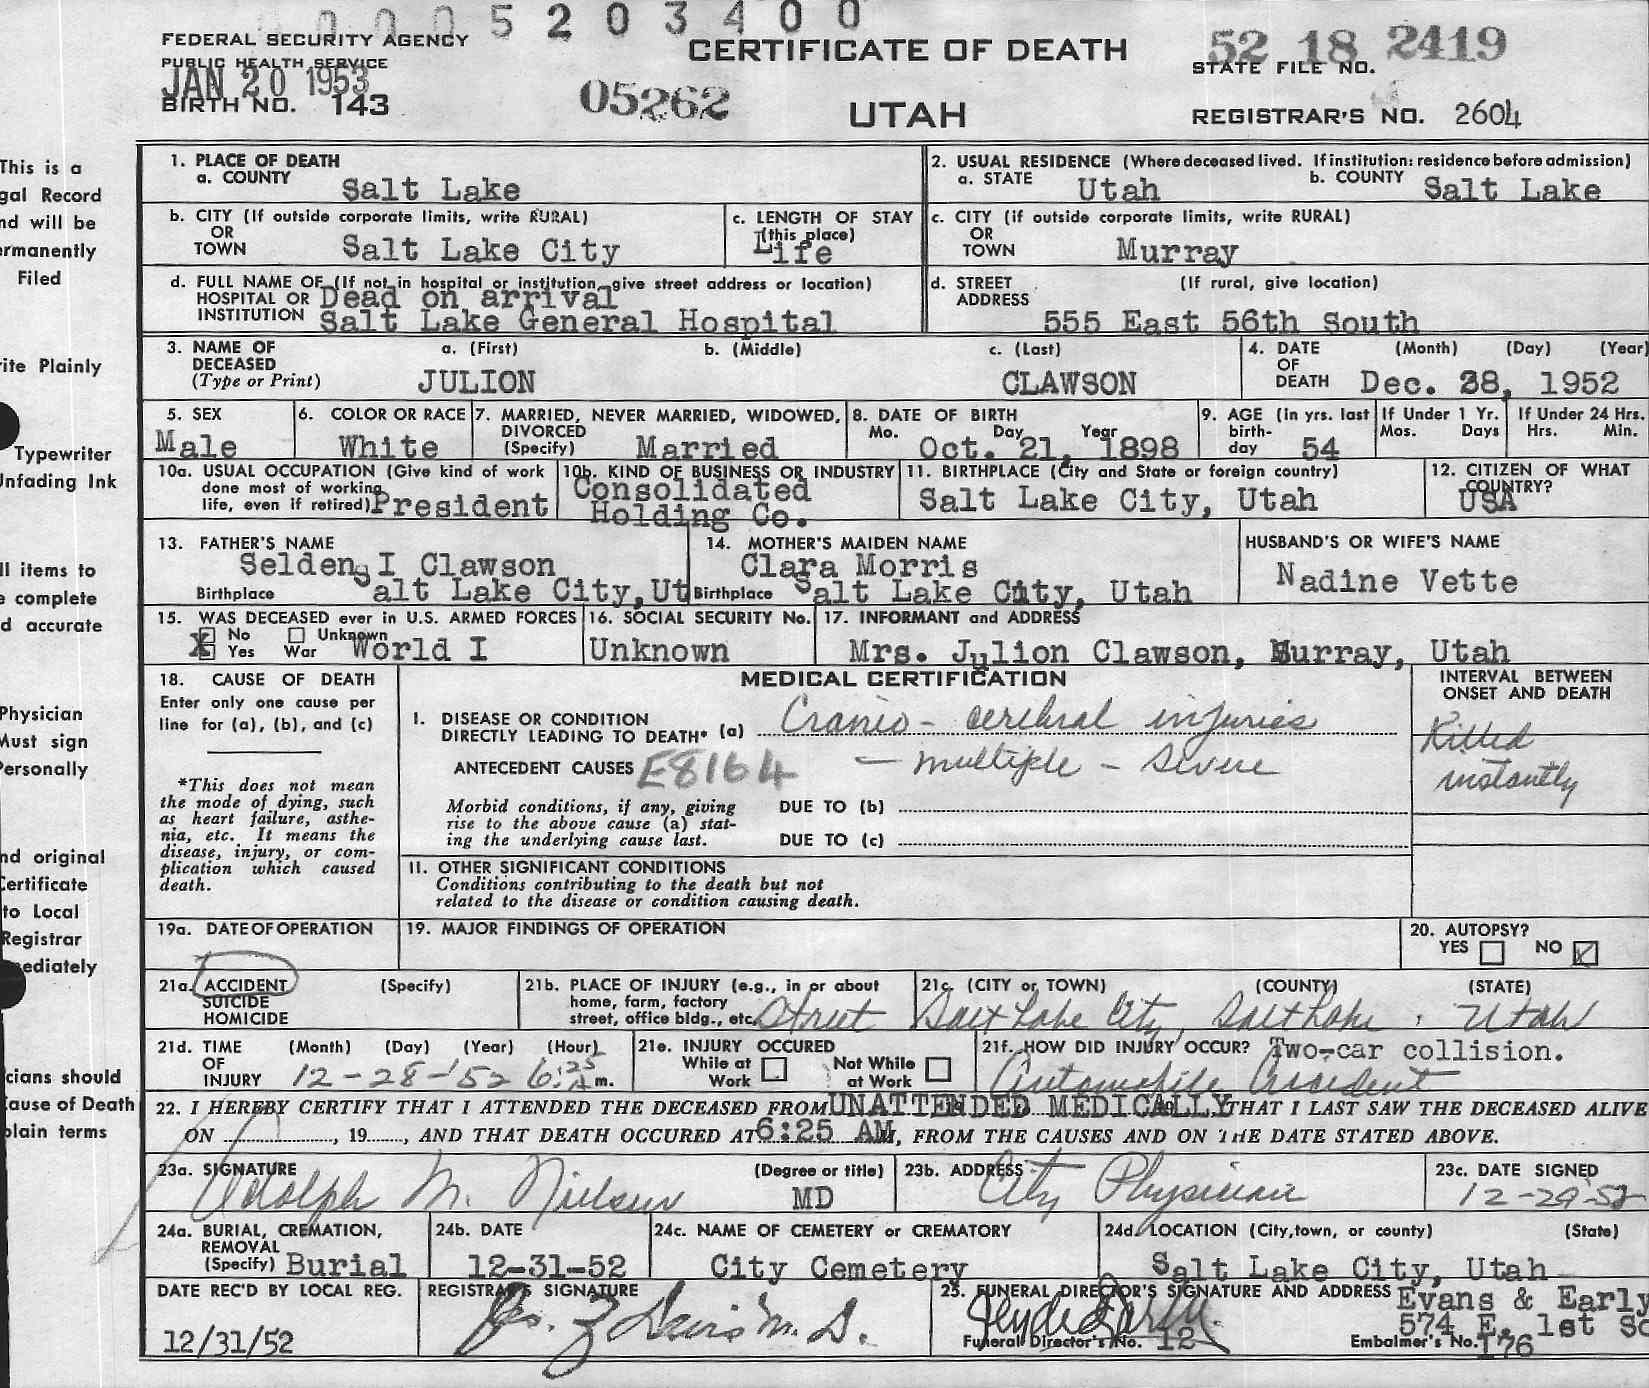 0005203400
FEDERAL SECURITY AGENCY
PUBLIC HEALTH SERVICE
JAN 20 1953
BIRTH NO. 143
05262
CERTIFICATE OF DEATH
UTAH
52 18 2419
STATE FILE NO.
REGISTRAR'S NO. 2604
This is a
gal Record
nd will be
ermanently
Filed
rite Plainly
Typewriter
Unfading Ink
ll items to
e complete
d accurate
Physician
Must sign
Personally
nd original
Certificate
to Local
Registrar
mediately
cians should
Cause of Death
plain terms
1. PLACE OF DEATH
a. COUNTY Salt Lake
2. USUAL RESIDENCE (Where deceased lived. If institution: residence before admission)
a. STATE Utah b. COUNTY Salt Lake
b. CITY (If outside corporate limits, write RURAL)
OR
TOWN Salt Lake City
c. LENGTH OF STAY
(this place)
Life
c. CITY (if outside corporate limits, write RURAL)
OR
TOWN Murray
d. FULL NAME OF (If not in hospital or institution, give street address or location)
HOSPITAL OR Dead on arrival
INSTITUTION Salt Lake General Hospital
d. STREET (If rural, give location)
ADDRESS
555 East 56th South
3. NAME OF a. (First) b. (Middle) c. (Last)
DECEASED
(Type or Print) JULION CLAWSON
4. DATE (Month) (Day) (Year)
OF
DEATH Dec. 28, 1952
5. SEX
Male
6. COLOR OR RACE
White
7. MARRIED, NEVER MARRIED, WIDOWED,
DIVORCED
(Specify) Married
8. DATE OF BIRTH
Mo. Day Year
Oct. 21, 1898
9. AGE (in yrs. last
birth-
day 54
If Under 1 Yr.
Mos. Days
If Under 24 Hrs.
Hrs. Min.
10a. USUAL OCCUPATION (Give kind of work
done most of working
life, even if retired) President
10b. KIND OF BUSINESS OR INDUSTRY
Consolidated
Holding Co.
11. BIRTHPLACE (City and State or foreign country)
Salt Lake City, Utah
12. CITIZEN OF WHAT
COUNTRY?
USA
13. FATHER'S NAME
Selden I Clawson
Birthplace Salt Lake City,Ut
14. MOTHER'S MAIDEN NAME
Clara Morris
Birthplace Salt Lake City, Utah
HUSBAND'S OR WIFE'S NAME
Nadine Vette
15. WAS DECEASED ever in U.S. ARMED FORCES
No Unknown
X Yes War World I
16. SOCIAL SECURITY No.
Unknown
17. INFORMANT and ADDRESS
Mrs. Julion Clawson, Murray, Utah
18. CAUSE OF DEATH
Enter only one cause per
line for (a), (b), and (c)
*This does not mean
the mode of dying, such
as heart failure, asthe-
nia, etc. It means the
disease, injury, or com-
plication which caused
death.
MEDICAL CERTIFICATION
I. DISEASE OR CONDITION
DIRECTLY LEADING TO DEATH* (a) Cranio-cerebral injuries
ANTECEDENT CAUSES E8164 — multiple - severe
Morbid conditions, if any, giving
rise to the above cause (a) stat-
ing the underlying cause last.
DUE TO (b)
DUE TO (c)
II. OTHER SIGNIFICANT CONDITIONS
Conditions contributing to the death but not
related to the disease or condition causing death.
INTERVAL BETWEEN
ONSET AND DEATH
Killed
instantly
19a. DATE OF OPERATION
19. MAJOR FINDINGS OF OPERATION
20. AUTOPSY?
YES NO
21a. ACCIDENT (Specify)
SUICIDE
HOMICIDE
21b. PLACE OF INJURY (e.g., in or about
home, farm, factory
street, office bldg., etc. Street
21c. (CITY or TOWN) (COUNTY) (STATE)
Salt Lake City, Salt Lake, Utah
21d. TIME (Month) (Day) (Year) (Hour)
OF
INJURY 12-28-'52 6:25 A m.
21e. INJURY OCCURED
While at Work Not While at Work
21f. HOW DID INJURY OCCUR? Two-car collision.
Automobile Accident
22. I HEREBY CERTIFY THAT I ATTENDED THE DECEASED FROM UNATTENDED MEDICALLY THAT I LAST SAW THE DECEASED ALIVE
ON , 19 , AND THAT DEATH OCCURED AT 6:25 AM, FROM THE CAUSES AND ON THE DATE STATED ABOVE.
23a. SIGNATURE (Degree or title)
Adolph M. Nielsen MD
23b. ADDRESS
City Physician
23c. DATE SIGNED
12-29-52
24a. BURIAL, CREMATION,
REMOVAL
(Specify) Burial
24b. DATE
12-31-52
24c. NAME OF CEMETERY or CREMATORY
City Cemetery
24d. LOCATION (City, town, or county) (State)
Salt Lake City, Utah
DATE REC'D BY LOCAL REG.
12/31/52
REGISTRAR'S SIGNATURE
M. D.
25. FUNERAL DIRECTOR'S SIGNATURE AND ADDRESS Evans & Early
574 E. 1st So
Funeral Director's No. 12
Embalmer's No. 176